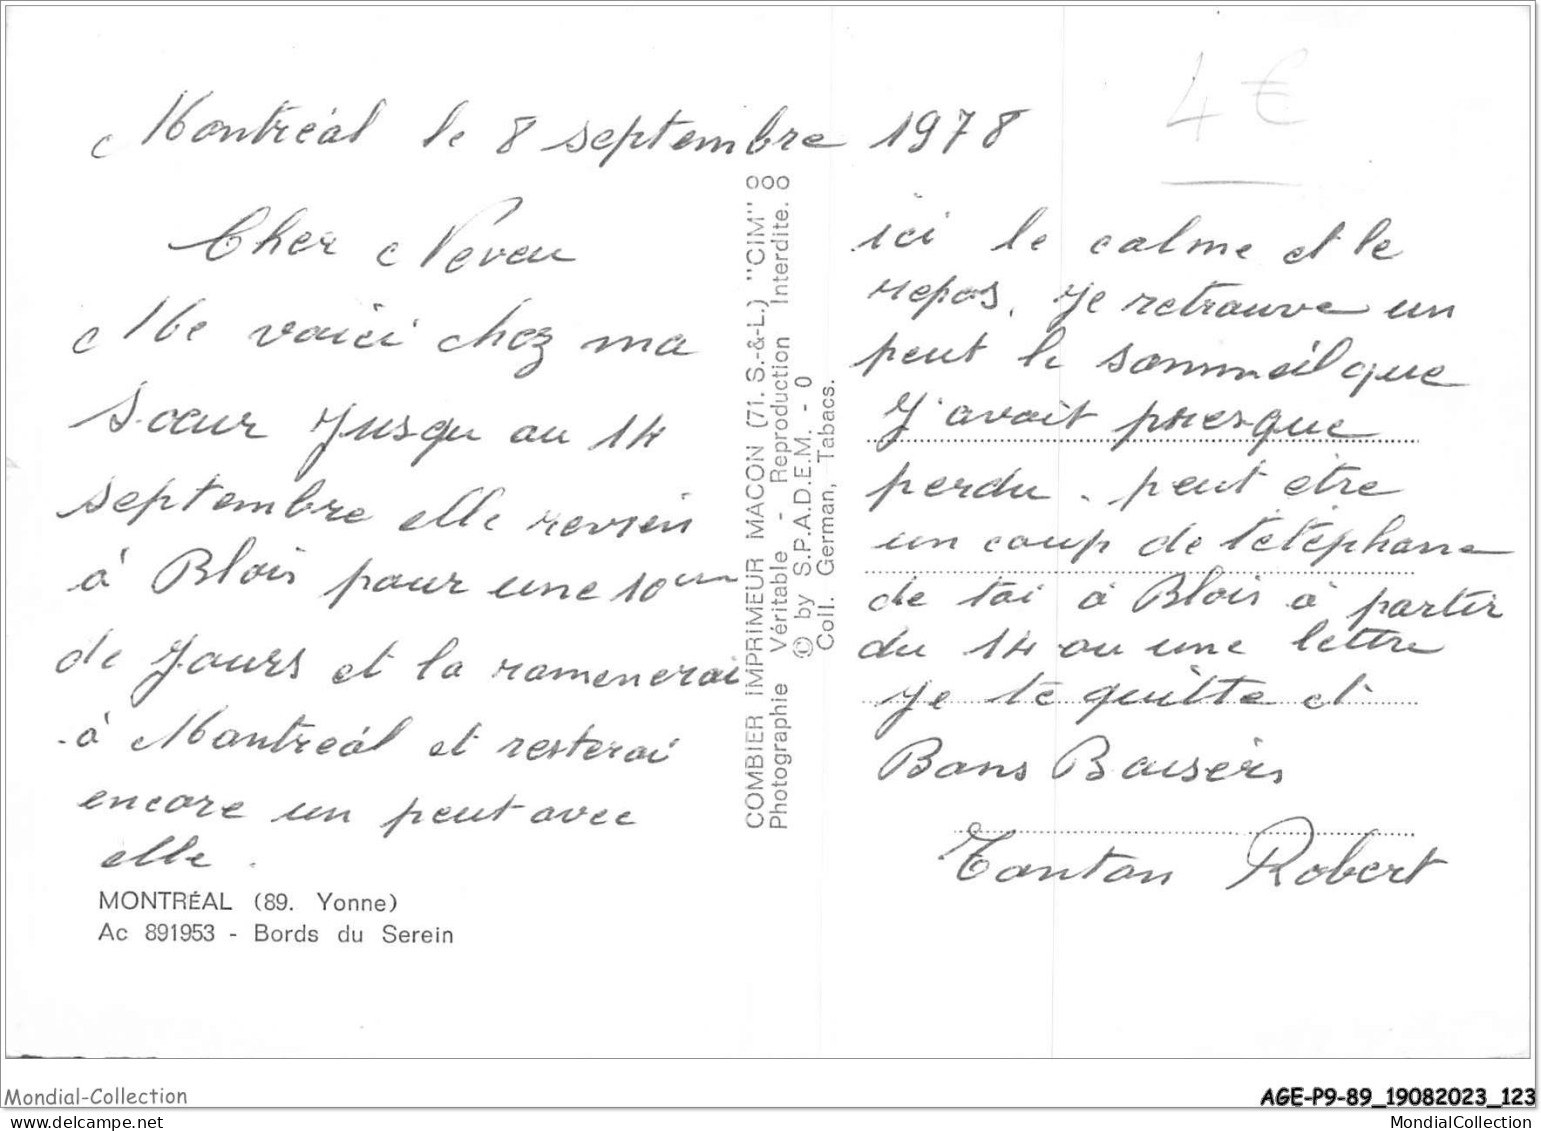 4€
Montréal le 8 septembre 1978
Cher Neveu
Me voici chez ma
soeur jusqu au 14
septembre elle revien
à Blois pour une 10aine
de jours et la ramenerai
à Montreal et resterai
encore un peut avec
elle.
MONTRÉAL (89. Yonne)
Ac 891953 - Bords du Serein
COMBIER IMPRIMEUR MACON (71. S.-&-L.) "CIM"
Photographie Véritable - Reproduction Interdite.
© by S.P.A.D.E.M. - 0
Coll. German, Tabacs.
ici le calme et le
repos. je retrouve un
peut le sommeil que
j'avait presque
perdu. peut être
un coup de téléphone
de toi à Blois à partir
du 14 ou une lettre
je te quitte et
Bons Baisers
Tonton Robert
Mondial-Collection
AGE-P9-89_19082023_123
www.delcampe.net
MondialCollection